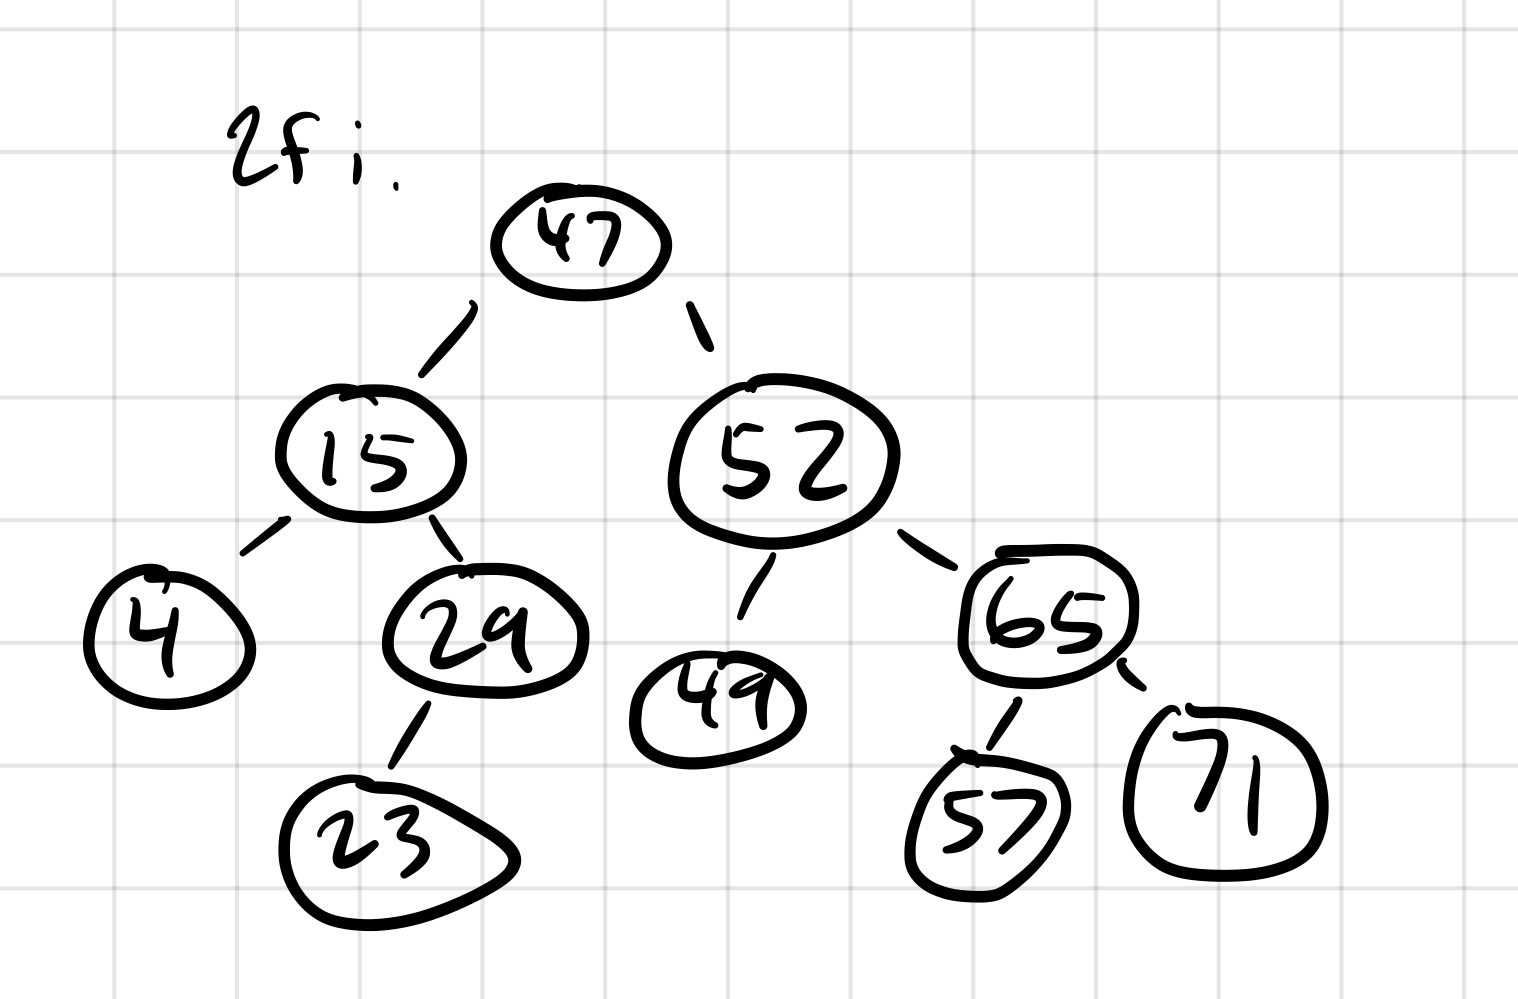 2f i.
47
15 52
4 29 65
49
23 57 71